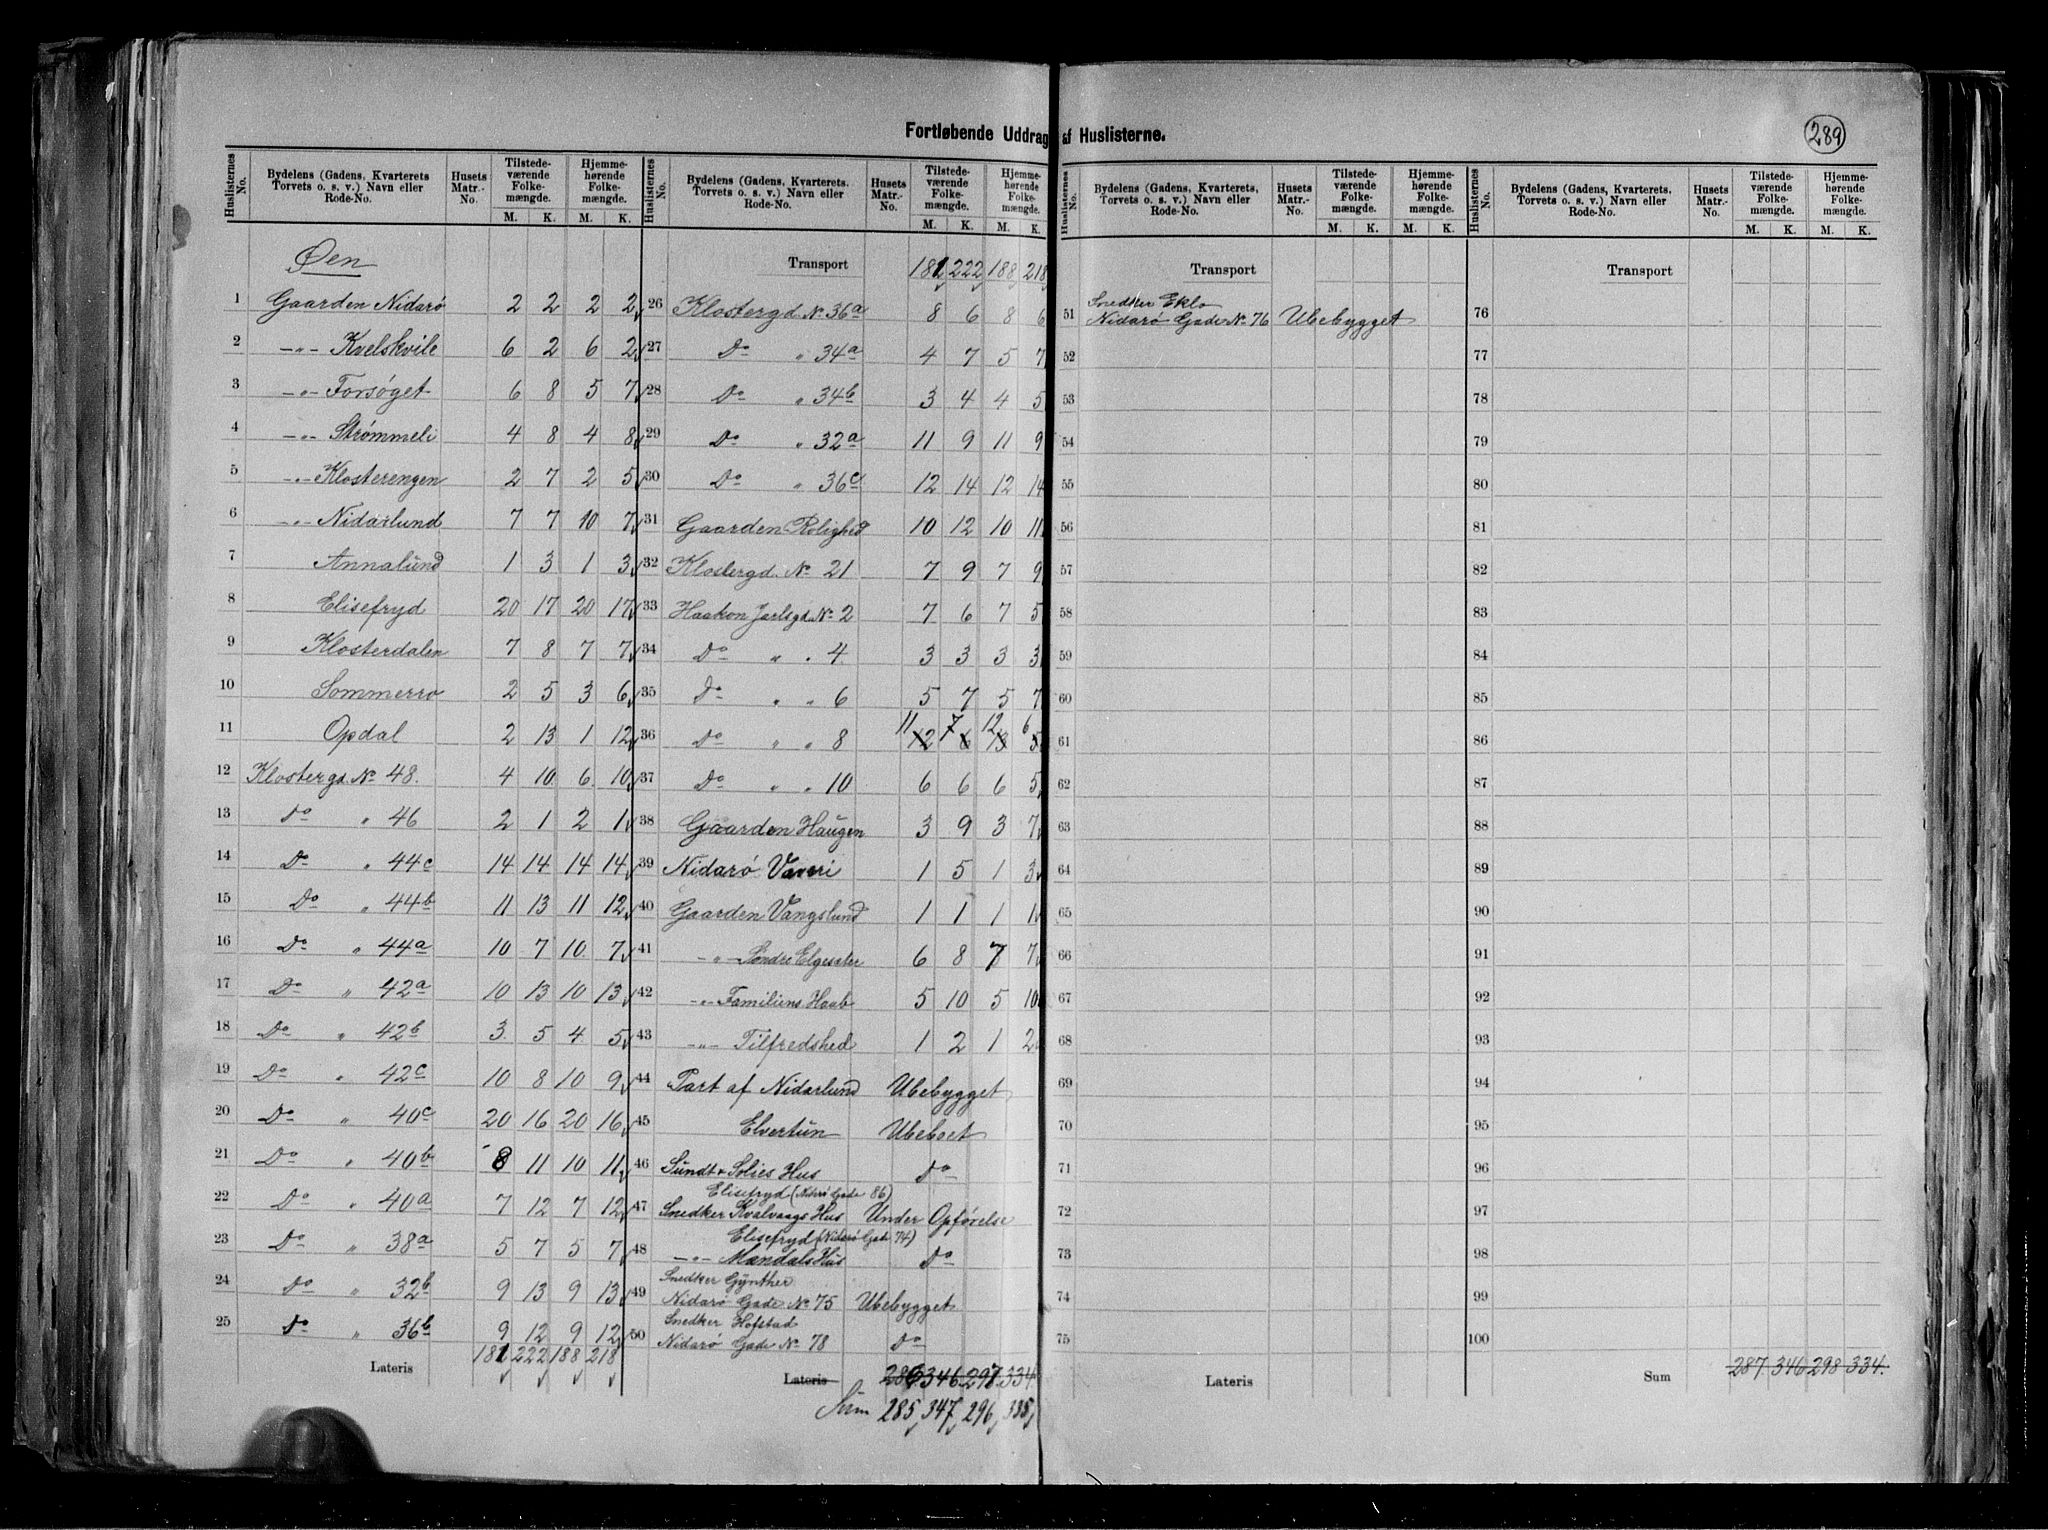 Fortløbende Uddrag af Huslisterne.
289
Huslisternes No. | Bydelens (Gadens, Kvarterets Torvets o. s. v.) Navn eller Rode-No. | Husets Matr.-No. | Tilstede-værende Folke-mængde. M. K. | Hjemme-hørende Folke-mængde. M. K.
Øen
1 Gaarden Nidarø 2 2 2 2
2 -"- Kvelskvile 6 2 6 2
3 -"- Forsøget 6 8 5 7
4 -"- Strømmeli 4 8 4 8
5 -"- Klosterengen 2 7 2 5
6 -"- Nidarlund 7 7 10 7
7 Annalund 1 3 1 3
8 Elisefryd 20 17 20 17
9 Klosterdalen 7 8 7 7
10 Sommerro 2 5 3 6
11 Opdal 2 13 1 12
12 Klostergd. No. 48. 4 10 6 10
13 Do " 46 2 1 2 1
14 Do " 44c 14 14 14 14
15 Do " 44b 11 13 11 12
16 Do " 44a 10 7 10 7
17 Do " 42a 10 13 10 13
18 Do " 42b 3 5 4 5
19 Do " 42c 10 8 10 9
20 Do " 40c 20 16 20 16
21 Do " 40b 8 11 10 11
22 Do " 40a 7 12 7 12
23 Do " 38a 5 7 5 7
24 Do " 32b 9 13 9 13
25 Do " 36b 9 12 9 12
Lateris 181 222 188 218
Huslisternes No. | Bydelens (Gadens, Kvarterets. Torvets o. s. v.) Navn eller Rode-No. | Husets Matr.-No. | Tilstede-værende Folke-mængde. M. K. | Hjemme-hørende Folke-mængde. M. K.
Transport 181 222 188 218
26 Klostergd. No. 36a 8 6 8 6
27 Do " 34a 4 7 5 7
28 Do " 34b 3 4 4 5
29 Do " 32a 11 9 11 9
30 Do " 36c 12 14 12 14
31 Gaarden Rolighed 10 12 10 11
32 Klostergd. No. 21 7 9 7 9
33 Haakon Jarlsgd. No. 2 7 6 7 5
34 Do " " 4. 3 3 3 3
35 Do " " 6 5 7 5 7
11 7 12 6
36 Do " " 8 12 6 13 5
37 Do " " 10 6 6 6 5
38 Gaarden Haugen 3 9 3 7
39 Nidarø Væveri 1 5 1 3
40 Gaarden Vangslund 1 1 1 1
41 -"- Søndre Elgesæter 6 8 7 7
42 -"- Familiens Haab 5 10 5 10
43 -"- Tilfredshed 1 2 1 2
44 Part af Nidarlund Ubebygget
45 Elvertun Ubeboet
46 Sundt & Solies Hus Do
Elisefryd (Nidarø Gade 86)
47 Snedker Kvalvaags Hus Under Opførelse
Elisefryd (Nidarø Gade 74)
48 -"- Mændals Hus Do
Snedker Gynther
49 Nidarø Gade No. 75 Ubebygget
Snedker Hofstad
50 Nidarø Gade No. 78 Do
Lateris 286 346 297 334
Sum 285 347 296 335
Huslisternes No. | Bydelens (Gadens, Kvarterets, Torvets o. s. v.) Navn eller Rode-No. | Husets Matr.-No. | Tilstede-værende Folke-mængde. M. K. | Hjemme-hørende Folke-mængde. M. K.
Transport
Snedker Eklo
51 Nidarø Gade No. 76 Ubebygget
52
53
54
55
56
57
58
59
60
61
62
63
64
65
66
67
68
69
70
71
72
73
74
75
Lateris
Huslisternes No. | Bydelens (Gadens, Kvarterets. Torvets o. s. v.) Navn eller Rode-No. | Husets Matr.-No. | Tilstede-værende Folke-mængde. M. K. | Hjemme-hørende Folke-mængde. M. K.
Transport
76
77
78
79
80
81
82
83
84
85
86
87
88
89
90
91
92
93
94
95
96
97
98
99
100
Sum 287. 346 298 334.